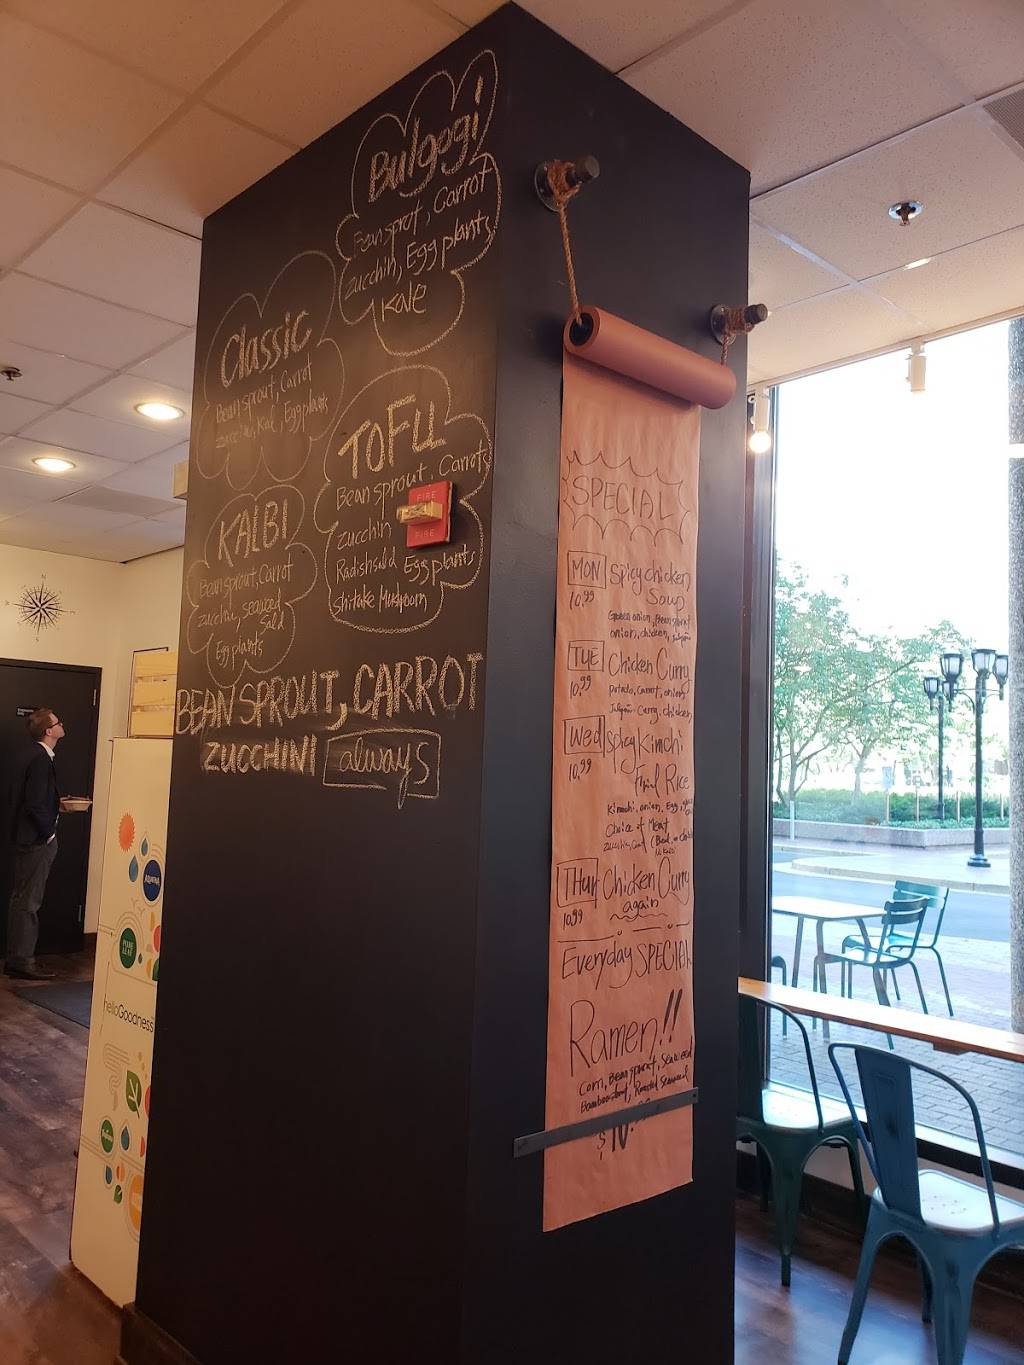 Bulgogi
Bean sprot, Carrot
zucchin, Egg plants
Kale
Classic
Bean sprout, Carrot
zucchini, Kal, Egg plants
TOFU
Bean sprout, Carrot
zucchin
Radish salad Egg plants
shitake Mushroom
FIRE
FIRE
KALBI
Bean sprout, Carrot
zucchini, seaweed
Salad
Egg plants
BEAN SPROUT, CARROT
ZUCCHINI always
SPECIAL
MON Spicy chicken
10.99 Soup
onion, chicken, Jalapeño
TUE Chicken Curry
10.99 Potato, carrot, onion,
Jalapeño Curry, chicken
Wed Spicy Kimchi
10.99 Fried Rice
Kimchi, onion, Egg,
Choice of Meat
THur Chicken Curry
10.99 again
Everyday SPECIAL
Ramen!!
Corn, Bean sprout, Seaweed
Roasted Seaweed
$10.
helloGoodness